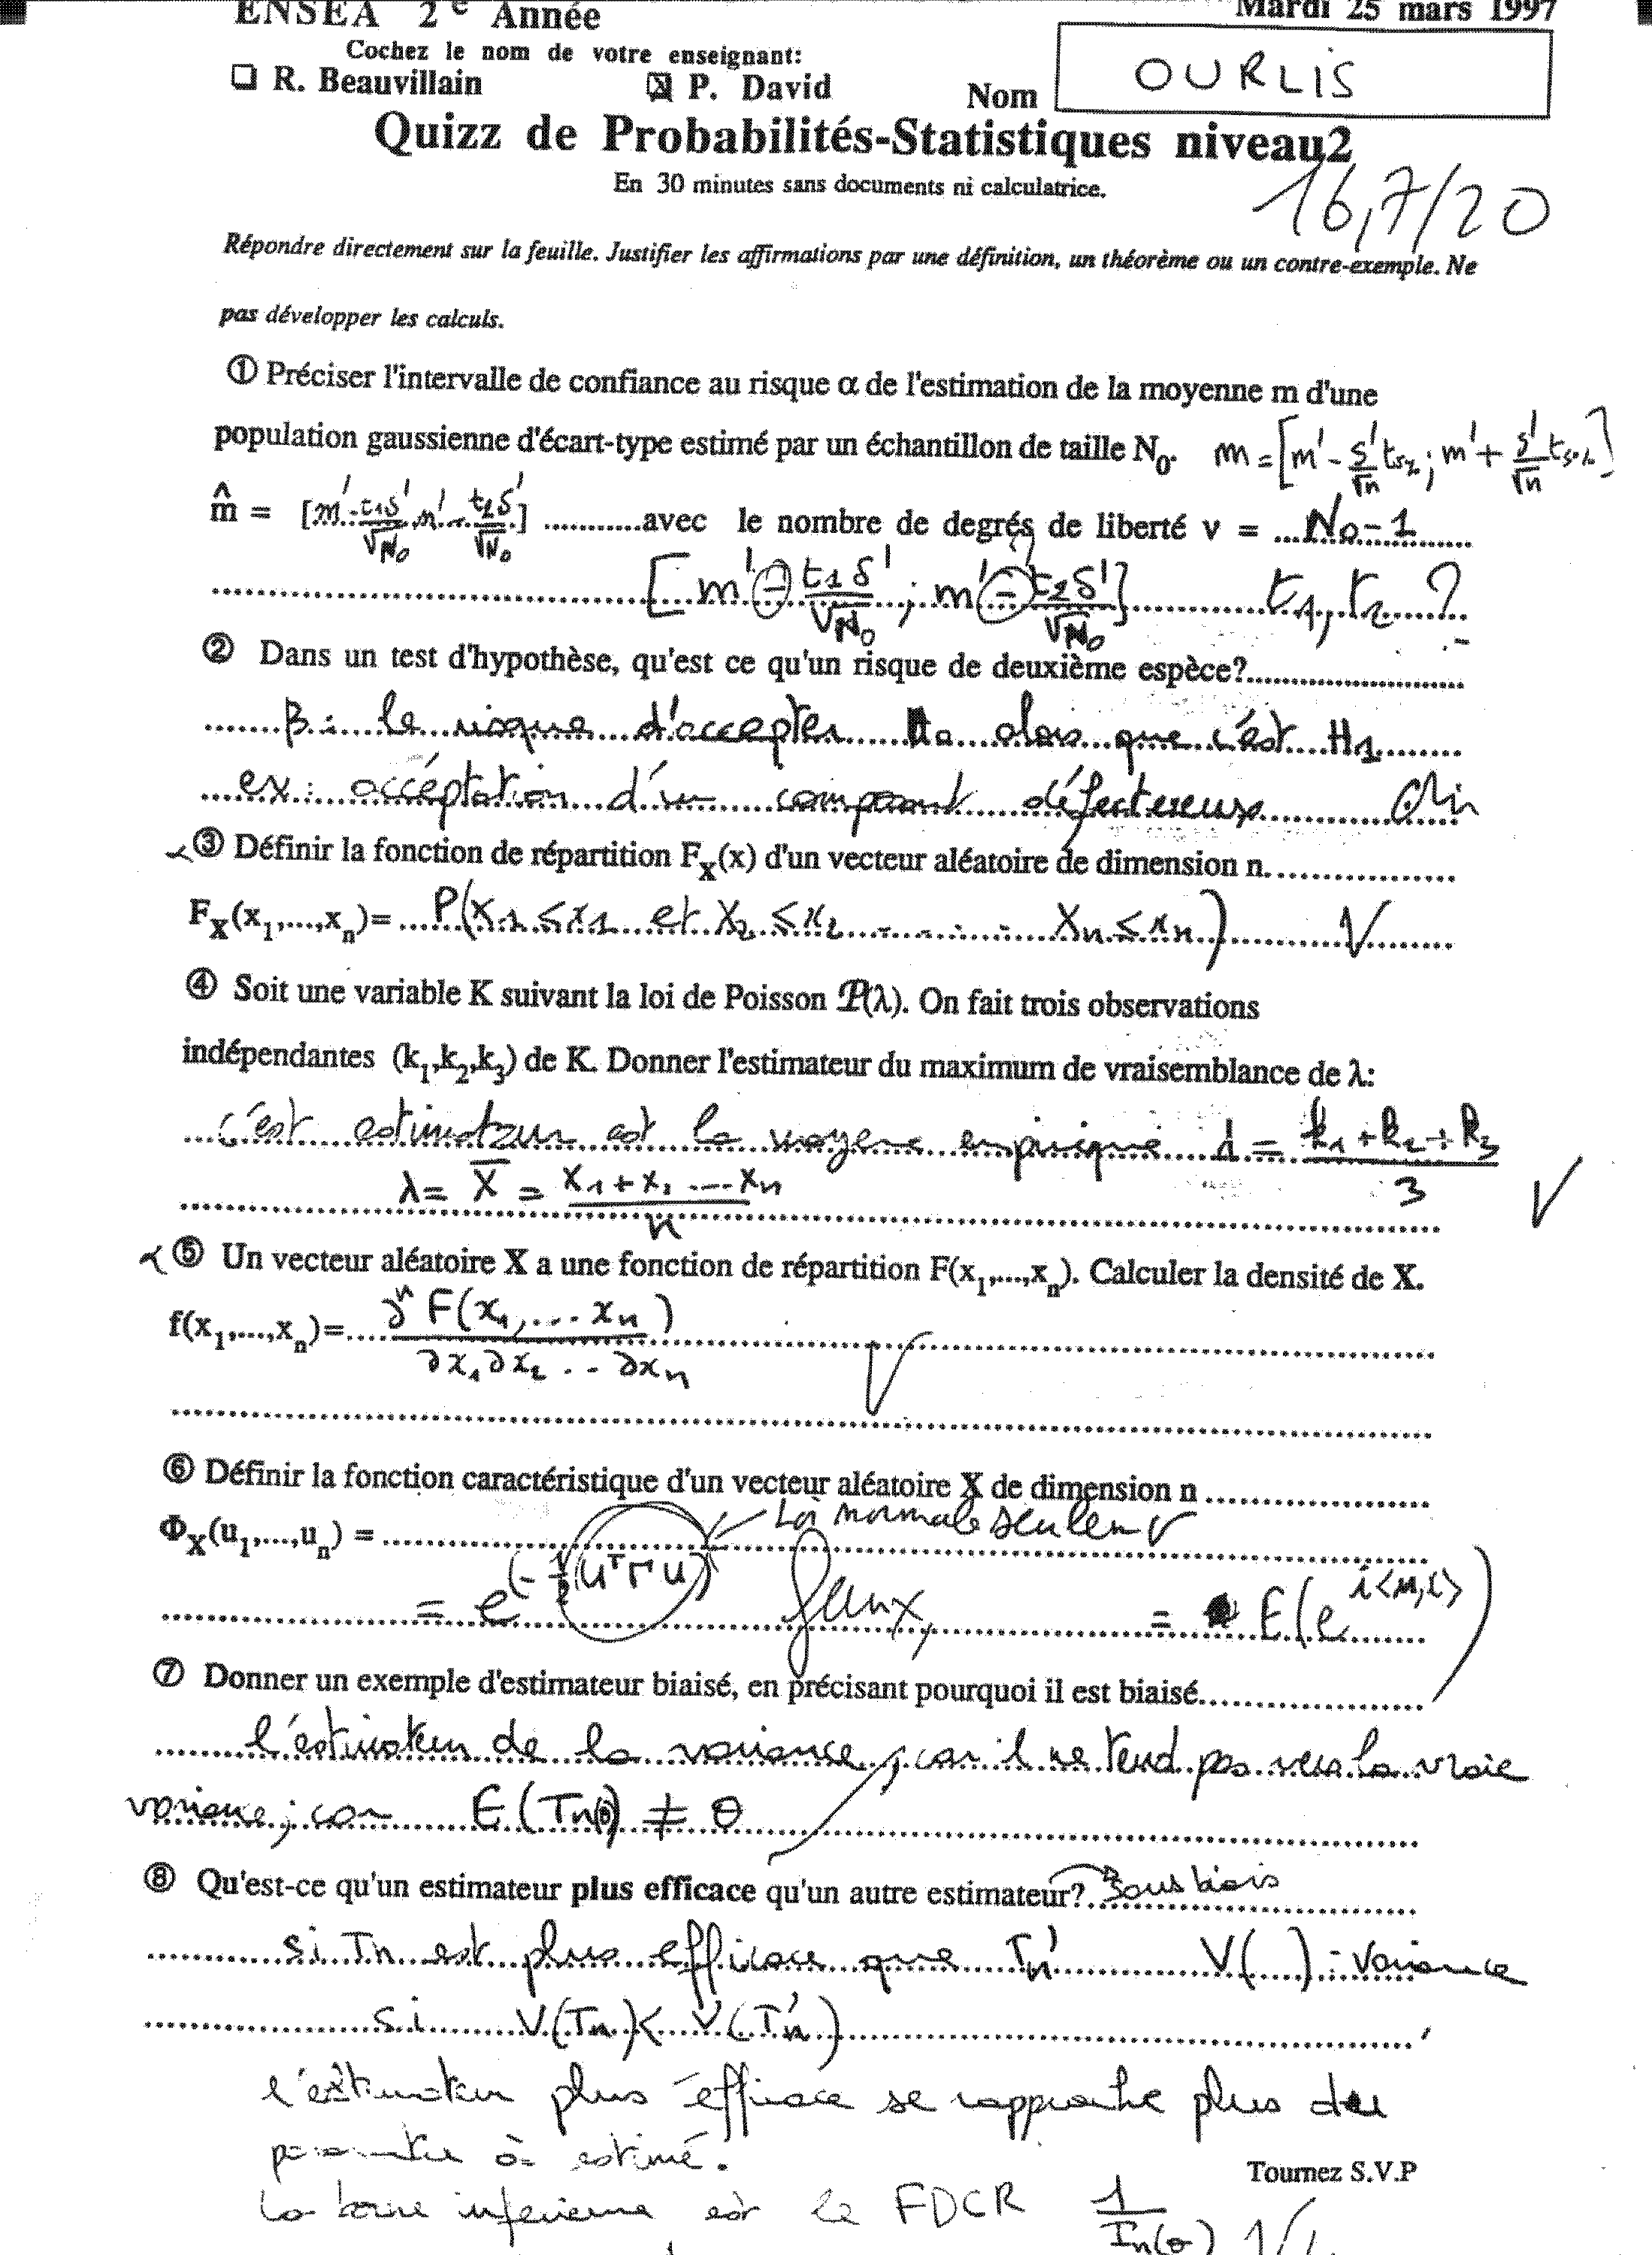 ENSEA 2e Année Mardi 25 mars 1997
Cochez le nom de votre enseignant:
❑ R. Beauvillain ☒ P. David Nom OURLIS
Quizz de Probabilités-Statistiques niveau2
En 30 minutes sans documents ni calculatrice.
16,7/20
Répondre directement sur la feuille. Justifier les affirmations par une définition, un théorème ou un contre-exemple. Ne
pas développer les calculs.
① Préciser l'intervalle de confiance au risque α de l'estimation de la moyenne m d'une
population gaussienne d'écart-type estimé par un échantillon de taille N₀. m = [m' - s'/√n t5%; m' + s'/√n t50%]
m̂ = [m' - t1s'/√N₀, m' - t2s'/√N₀] ...........avec le nombre de degrés de liberté ν = ...N₀-1......
[m' - t1s'/√N₀ ; m' - t2s'/√N₀] t1, t2 ?
② Dans un test d'hypothèse, qu'est ce qu'un risque de deuxième espèce?......................
β : le risque d'accepter H₀ alors que c'est H1
ex : accéptation d'un composant défectereuse oui
③ Définir la fonction de répartition Fx(x) d'un vecteur aléatoire de dimension n...................
Fx(x₁,...,xₙ)= P(X1 ≤ x1 et X2 ≤ x2 ........ Xn ≤ xn) √
④ Soit une variable K suivant la loi de Poisson 𝒫(λ). On fait trois observations
indépendantes (k₁,k₂,k₃) de K. Donner l'estimateur du maximum de vraisemblance de λ:
c'est estimateur est la moyene empirique λ = (k1+k2+k3)/3
λ = X̄ = (X1+X2 .... Xn)/n √
⑤ Un vecteur aléatoire X a une fonction de répartition F(x₁,...,xₙ). Calculer la densité de X.
f(x₁,...,xₙ)= ∂ⁿ F(x1,... xn) / ∂x1∂x2 ... ∂xn √
⑥ Définir la fonction caractéristique d'un vecteur aléatoire X de dimension n ......................
Φx(u₁,...,uₙ) = ........ Loi normale seulemt
= e^(-1/2(UᵀΓU)) faux, = E(e^i<u,x>)
⑦ Donner un exemple d'estimateur biaisé, en précisant pourquoi il est biaisé......................
l'estimateur de la variance, car il ne tend pas vers la vraie
variance; car E(Tn(θ)) ≠ θ
⑧ Qu'est-ce qu'un estimateur plus efficace qu'un autre estimateur? sous biais
si Tn est plus efficace que Tn' V( ) : variance
si V(Tn) < V(T'n)
l'estimateur plus éfficace se rapproche plus du
parametre à estimé.
la borne inferieure est la FDCR 1/In(θ)
Tournez S.V.P